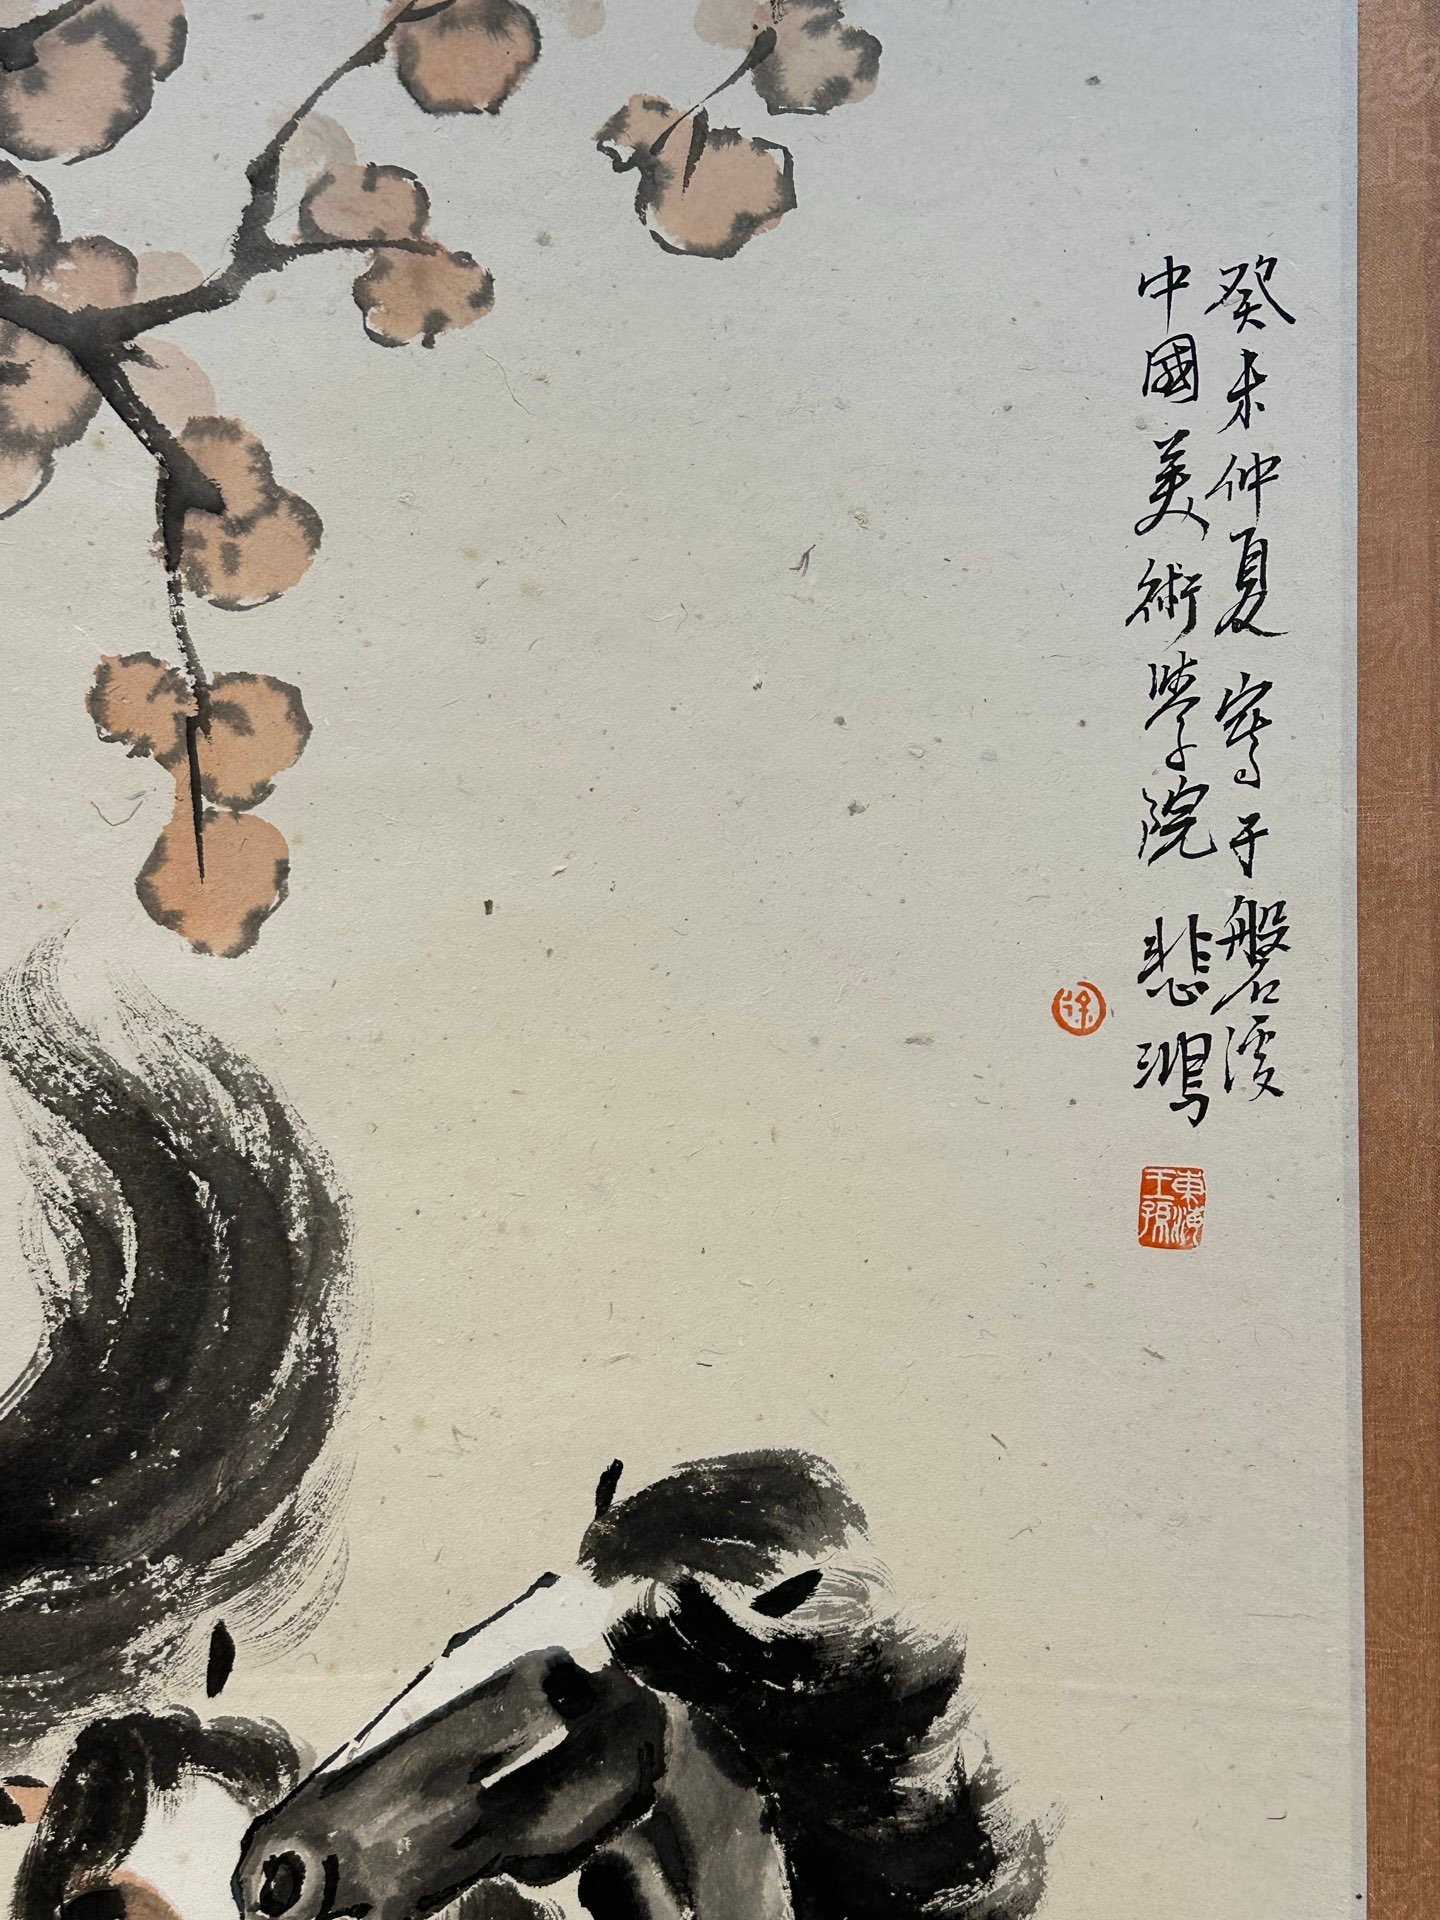 癸未仲夏寫于磐溪
中國美術學院 悲鴻
徐
東海王孫